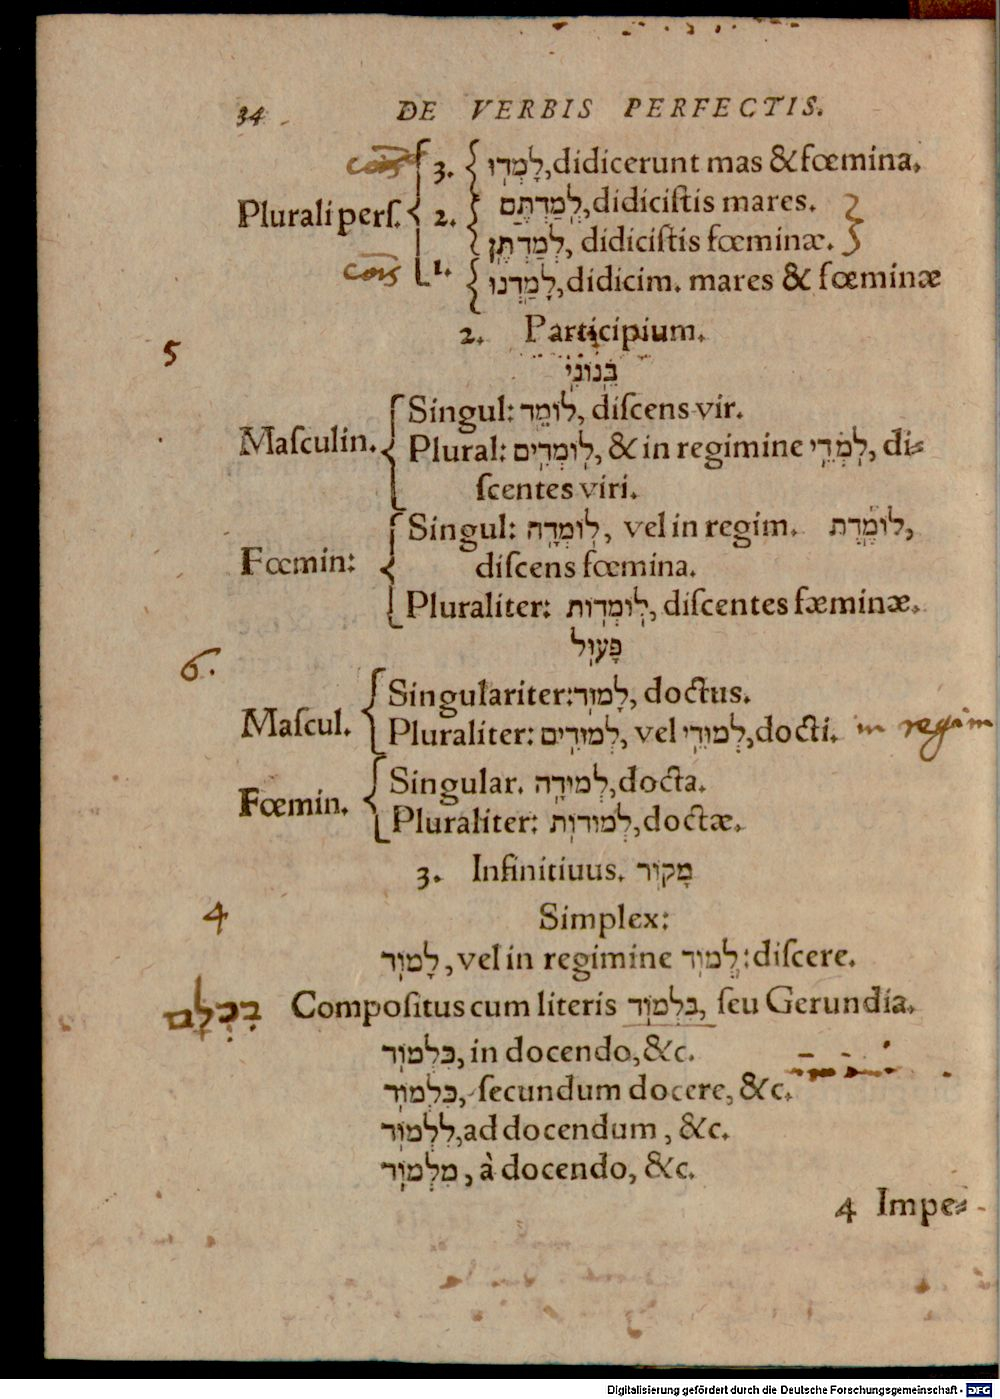 34 DE VERBIS PERFECTIS.
cōis 3. לָמְדוּ, didicerunt mas & fœmina.
Plurali perſ. 2. לְמַדְתֶּם, didiciſtis mares.
לְמַדְתֶּן, didiciſtis fœminæ.
cōis 1. לָמַדְנוּ, didicim. mares & fœminæ
2. Participium.
5
בֵּנוֹנִי
Singul: לוֹמֵד, diſcens vir.
Maſculin. Plural: לוֹמְדִים, & in regimine לֹמְדֵי, di⸗
ſcentes viri.
Singul: לוֹמְדָה, vel in regim. לוֹמֶדֶת,
Fœmin: diſcens fœmina.
Pluraliter: לוֹמְדוֹת, diſcentes fæminæ.
פָּעוּל
6.
Singulariter: לָמוּד, doctus.
Maſcul. Pluraliter: לְמוּדִים, vel לְמוּדֵי, docti. in regim
Singular. לְמוּדָה, docta.
Fœmin. Pluraliter: לְמוּדוֹת, doctæ.
3. Infinitiuus. מָקוֹר
4 Simplex:
לָמוֹד, vel in regimine לְמוֹד: diſcere.
בִּכְלָם Compoſitus cum literis בּלְמוֹד, ſeu Gerundia.
בִּלְמוֹד, in docendo, &c.
כִּלְמוֹד, ſecundum docere, &c.
לִלְמוֹד, ad docendum, &c.
מִלְּמוֹד, à docendo, &c.
4 Impe⸗
Digitalisierung gefördert durch die Deutsche Forschungsgemeinschaft - DFG